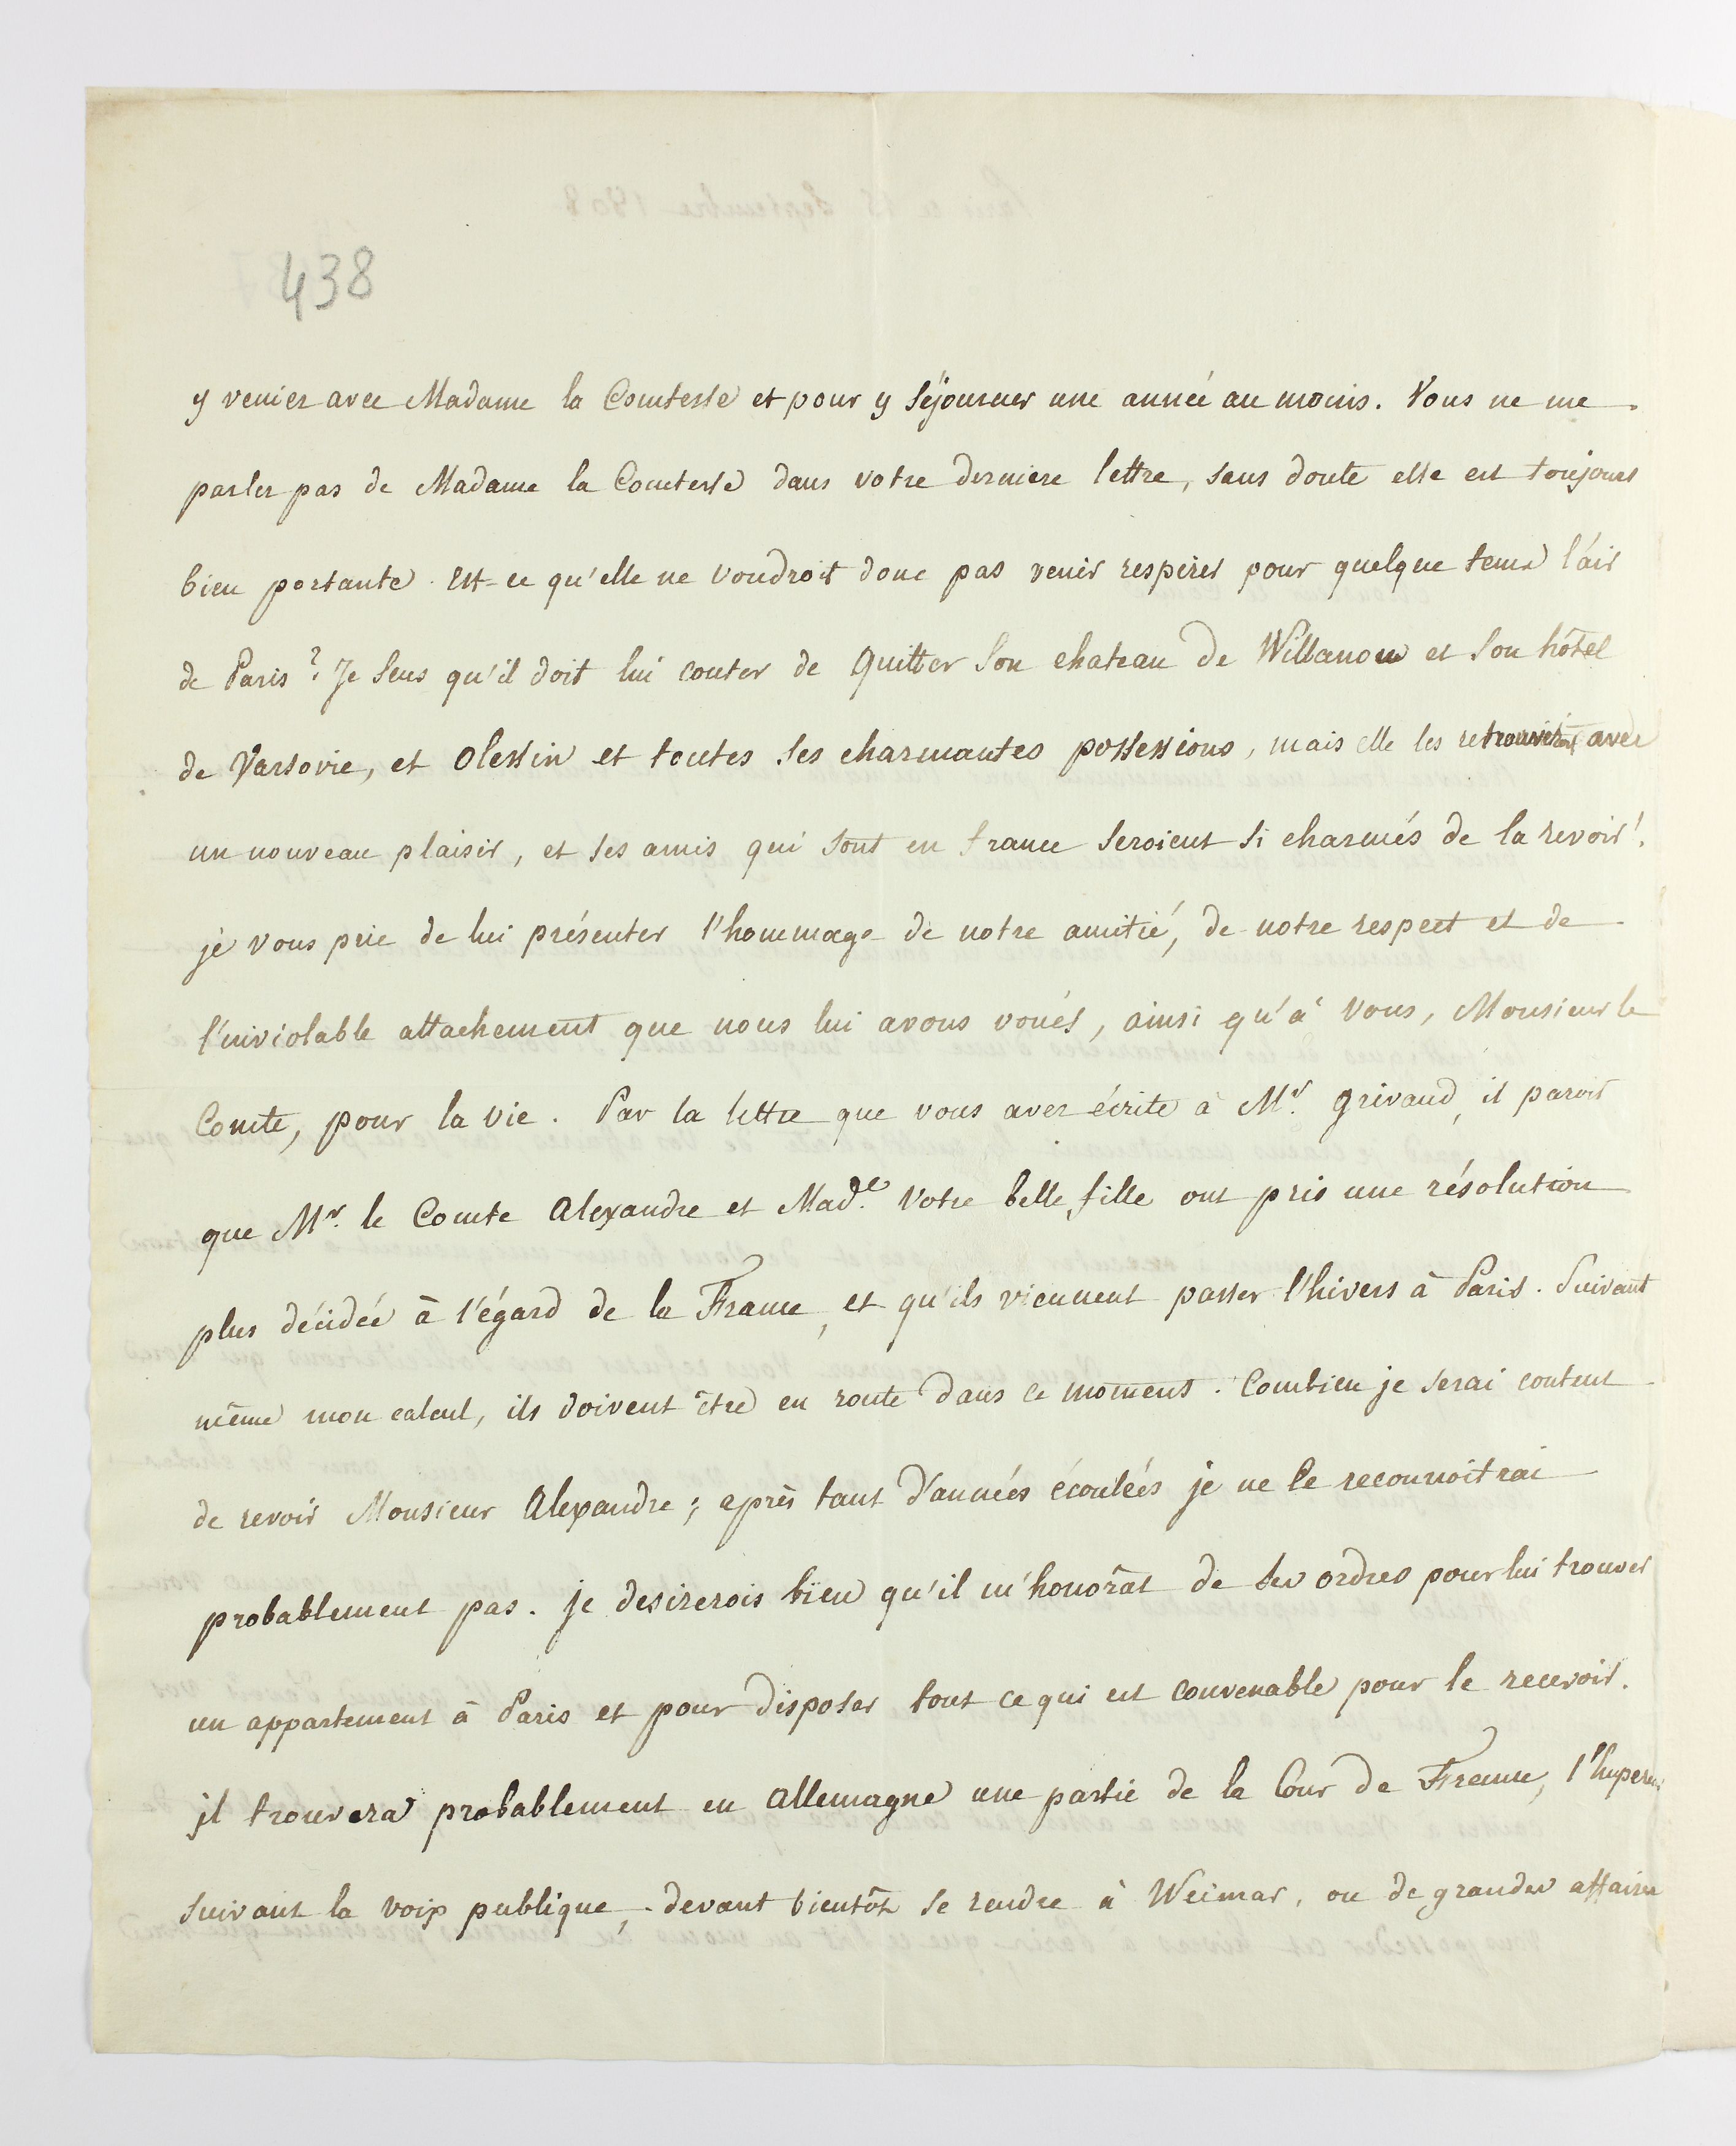 438
y venier avec Madame la Comtesse et pour y séjourner une année au moins. Vous ne me
parler pas de Madame la Comtesse dans votre derniere lettre, sans doute elle est toujours
bien portante. Est-ce qu'elle ne voudroit donc pas venir respirer pour quelque tems l'air
de Paris? Je sens qu'il doit lui couter de quitter son chateau de Willanow et son hôtel
de Varsovie, et Olessin et toutes ses charmantes possessions, mais elle les avec
un nouveau plaisir, et ses amis qui sont en france seroient si charmés de la revoir!
je vous prie de lui présenter l'hommage de notre amitié, de notre respect et de
l'inviolable attachement que nous lui avons voués, ainsi qu'à vous, Monsieur le
Comte, pour la vie. Par la lettre que vous avez écrite à Mr. Grivaud, il paroit
que Mr. le Comte Alexandre et Made. Votre belle fille ont pris une résolution
plus décidée à l'égard de la France, et qu'ils viennent passer l'hivers à Paris. Suivant
même mon calcul, ils doivent être en route dans ce moment. Combien je serai content
de revoir Monsieur Alexandre; après tant d'années écoulées je ne le reconnoitrai
probablement pas. je desirerois bien qu'il m'honorât de ses ordres pour lui trouver
un appartement à Paris et pour disposer tout ce qui est convenable pour le recevoir.
il trouvera probablement en Allemagne une partie de la Cour de France,
suivant la voix publique, devant bientôt se rendre à Weimar, ou de grandes affaires